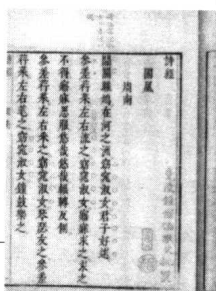 詩經
國風
周南
關關雎鳩在河之洲窈窕淑女君子好逑
參差荇菜左右流之窈窕淑女寤寐求之求之
不得寤寐思服悠哉悠哉輾轉反側
參差荇菜左右采之窈窕淑女琴瑟友之參差
荇菜左右芼之窈窕淑女鐘鼓樂之